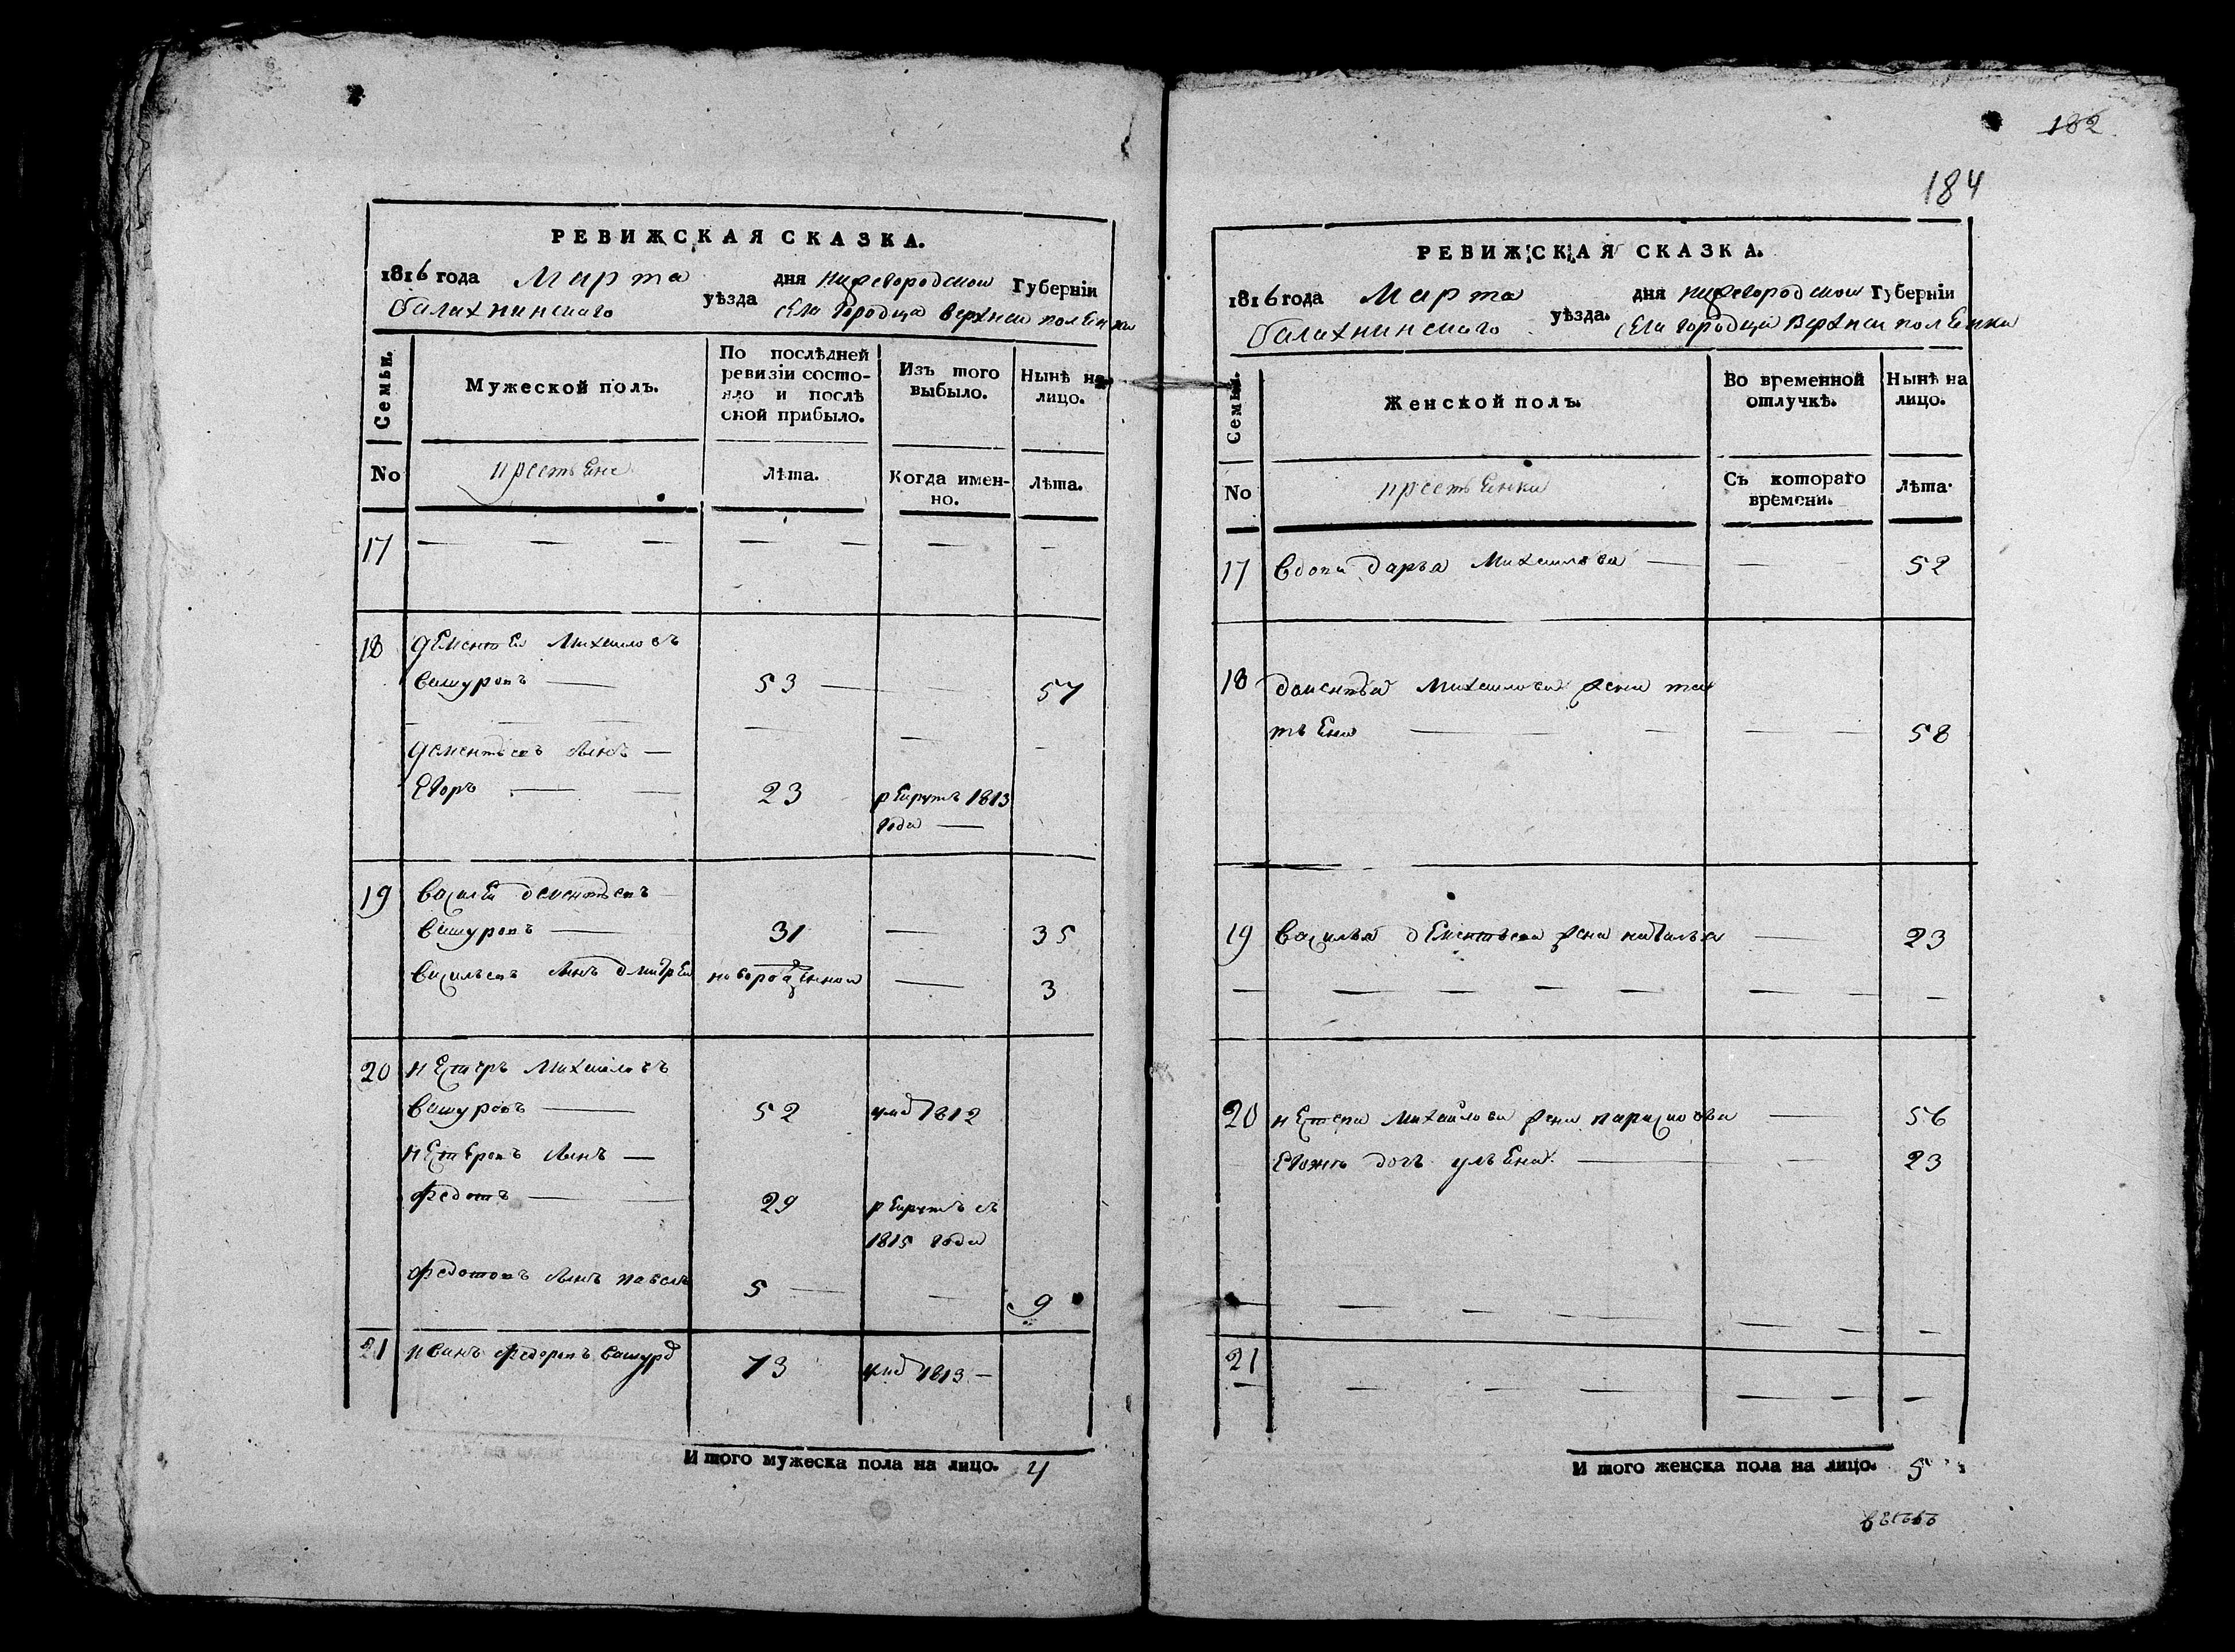 РЕВИЖСКАЯ СКАЗКА.
1816 года Марта дня нижегородской Губерніи
балахнинскаго уѣзда села городца верхней полянки
Семьи. Мужеской полъ. По послѣдней ревизіи состояло и послѣ оной прибыло. Изъ того выбыло. Нынѣ на лицо.
No крестьяне Лѣта. Когда именно. Лѣта.
17 — — — — — — —
18 дементей михаиловъ
вашуровъ — 53 — — 57
дементьевъ сынъ —
егоръ — 23 рекрутъ 1813
года —
19 василей дементьевъ
вашуровъ — 31 — 35
васильевъ сынъ дмитрей новорожденной — 3
20 нестеръ михаиловъ
вашуровъ — 52 умд 1812
нестеровъ сынъ —
федотъ — 29 рекрутъ съ
1815 года
федотовъ сынъ павелъ 5 — — 9
21 иванъ федоровъ вашуро 73 умд 1813 —
Итого мужеска пола на лицо. 4
182
184
РЕВИЖСКАЯ СКАЗКА.
1816 года Марта дня нижегородской Губерніи
балахнинскаго уѣзда. села городца верхней полянки
Семьи. Женской полъ. Во временной отлучкѣ. Нынѣ на лицо.
No крестьянки Съ котораго времени. Лѣта.
17 вдова дарья михаилова — — 52
18 дементья михаилова жена та
тьяна — — — — 58
19 василья дементьева жена наталья — 23
— — — — — — — —
20 нестера михаилова жена парасковья — 56
евожъ дочь ульяна — — 23
— — — — — — —
21
— — — — — — —
Итого женска пола на лицо. 5